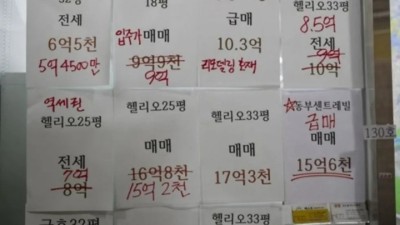 전세
6억5천
5억4500만
18평
입주가 매매
9억9천
9억
급매
10.3억
리모델링 호재
헬리오33평
8.5억
전세
9억
10억
역세권
헬리오25평
전세
7억
8억
헬리오25평
매매
16억8천
15억2천
헬리오33평
매매
17억3천
☆동부센트레빌
급매
매매
15억6천
130호
헬리오33평